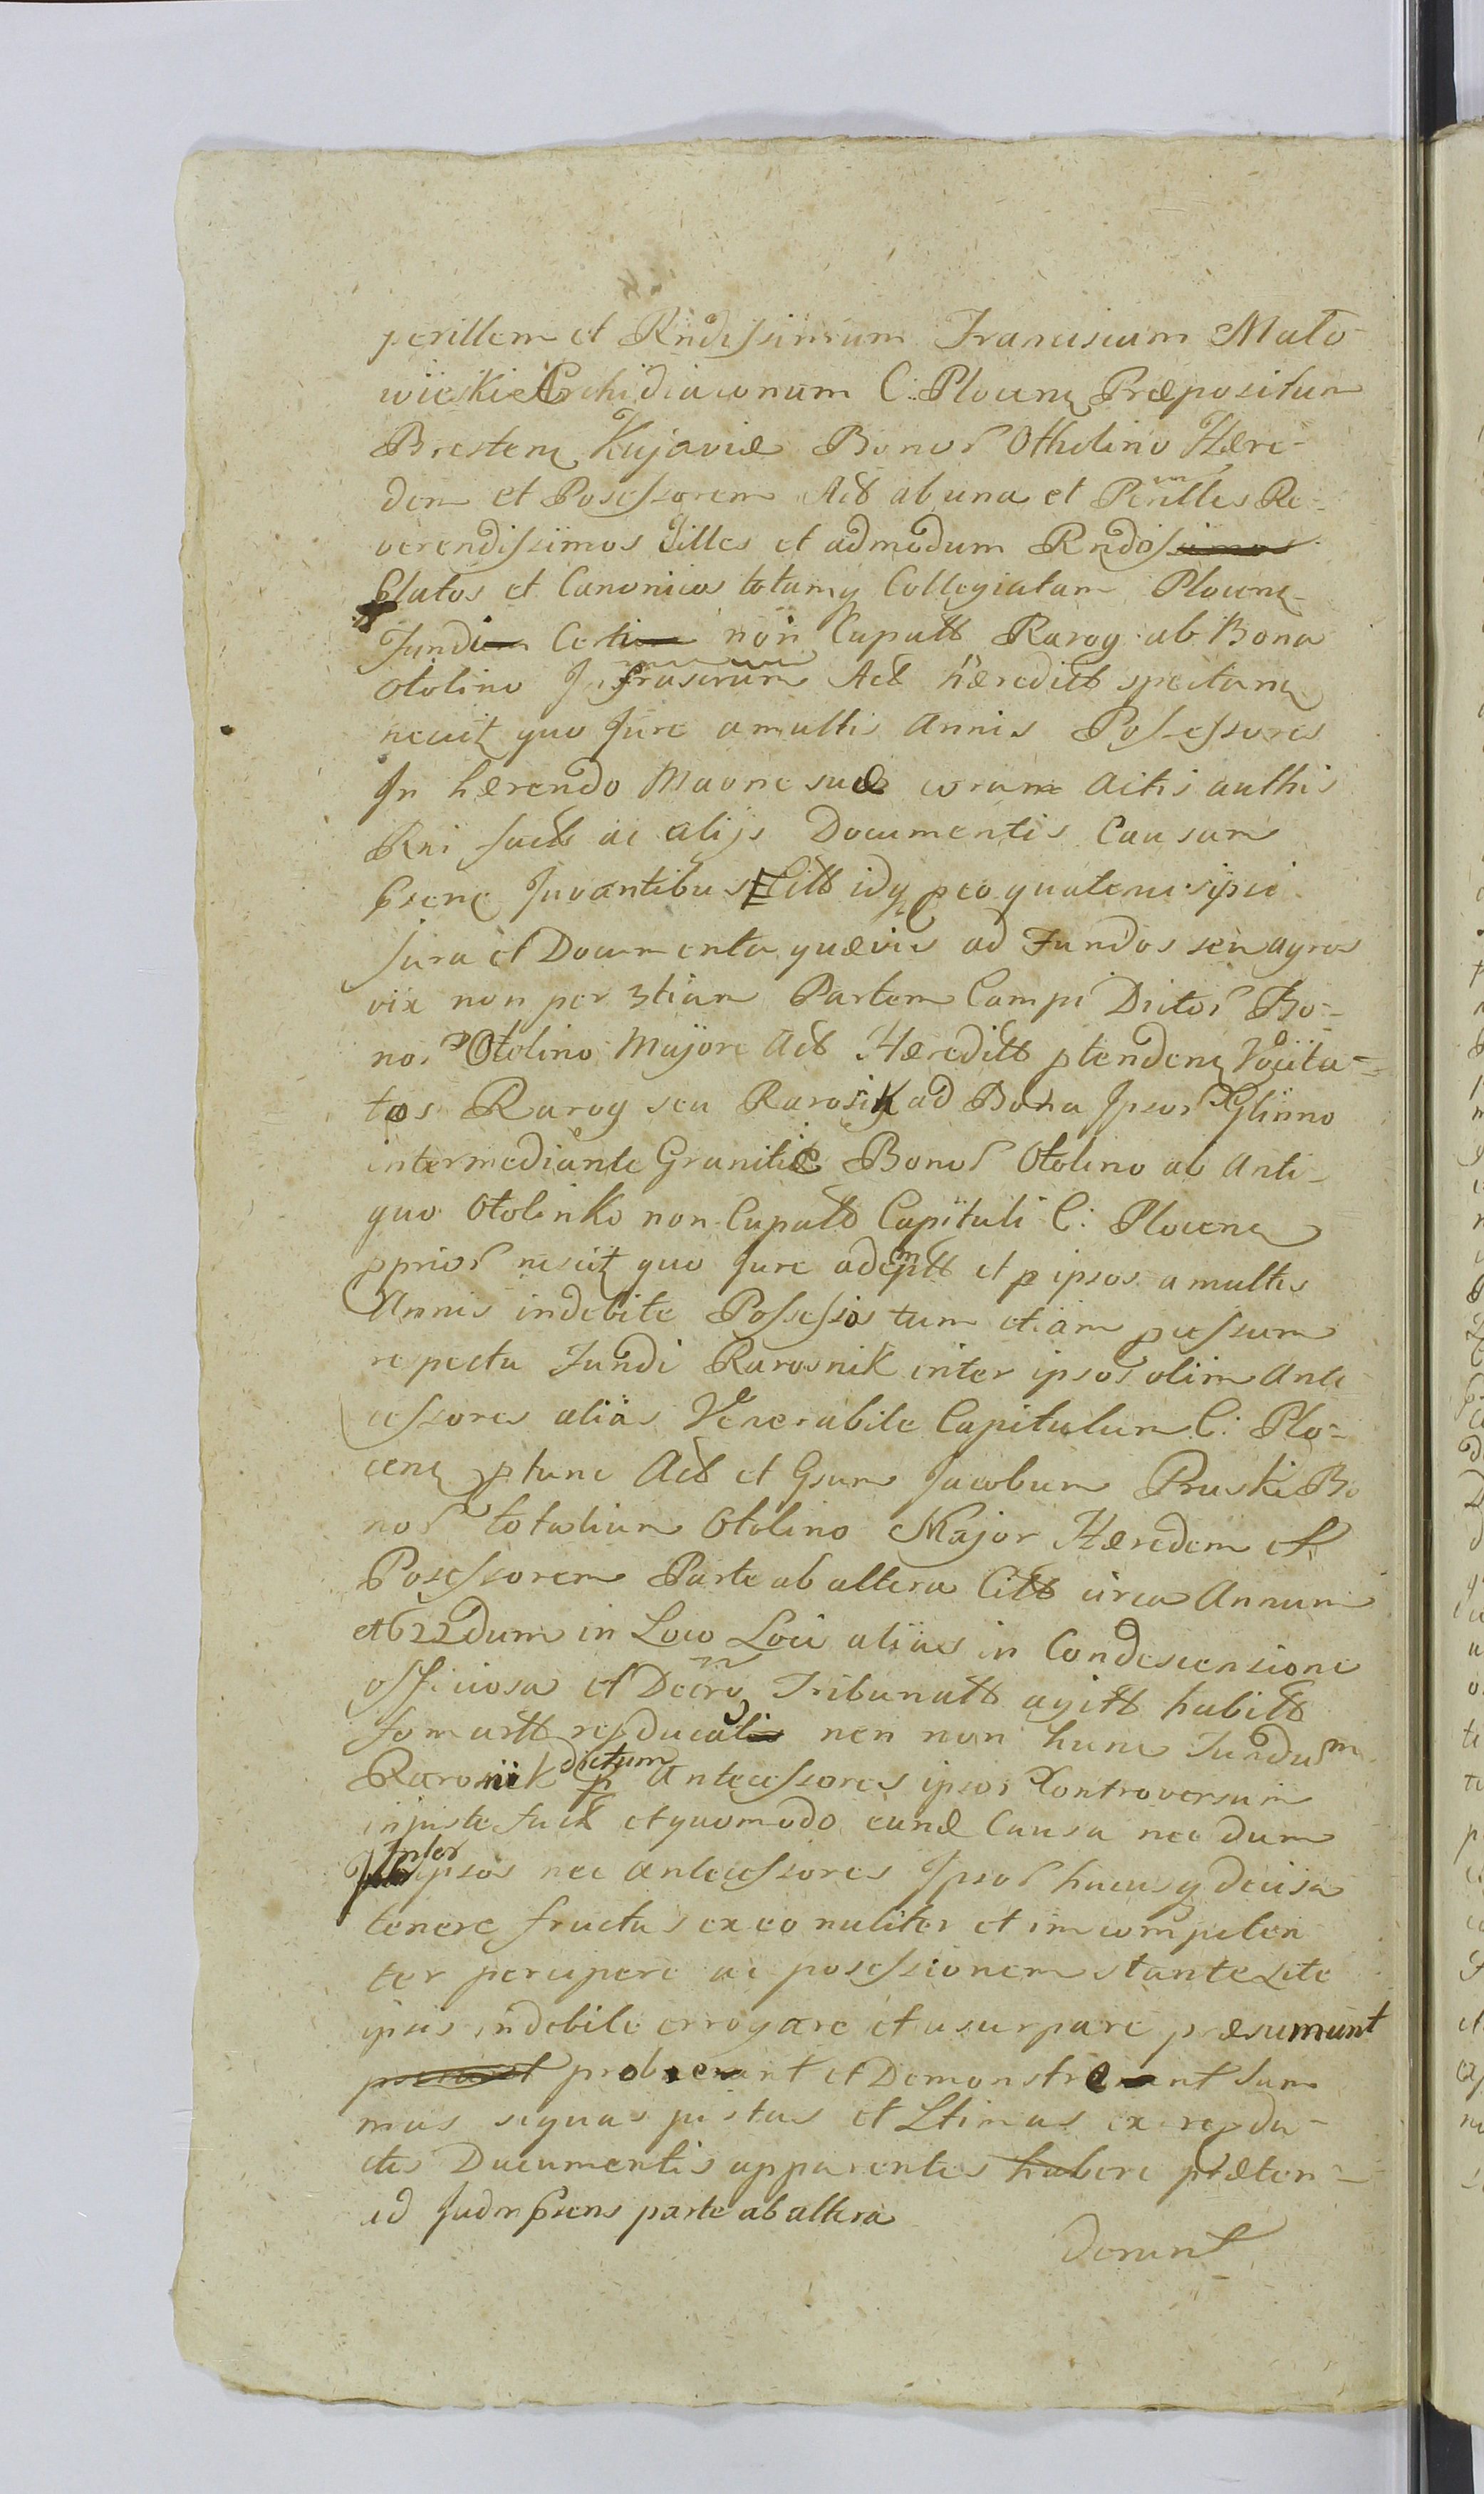 perillem et Rndissimum Franciscum Mało-
wieski Archidiaconum C: Plocen Præpositum
Bresten Kujaviæ Bonor Otholino Hære-
dem et Possessorem Act ab una et Perilles Re-
verendissimos Illes et admodum Rndos
Platos et Canonicos totamq Collegiatam Plocen
Fundi Certi non Cupatt Rarog ab Bona
Otolino Act hæreditt spectan
nescit quo Jure a multis Annis Possessores
In hærendo suæ coram Actis authis
Rni fact ac alijs Documentis Causam
Psenc Juvantibus Citt idq peo quatenus ipsi
Jura et Documenta quævis ad Fundos seu agros
vix non per 3tiam Partem Campi Dictor Bo-
nor Otolino Majore Act Hæreditt ptenden Vocita-
tos Rarog seu Rarosik ad Bona Ipsor Glinno
intermediante Granitie Bonor Otolino ab Anti-
quo Otolinko non Cupatt Capituli C: Plocen
pprior nescit quo Jure ademptt et p ipsos a multis
Annis indebite Possessos tum etiam pcessum
respectu Fundi Rarosnik inter ipsos olim Ante-
cessores alias Venerabile Capitulum C: Plo-
cen ptunc Act et Gsum Jacobum Pruski Bo
nor totalium Otolino Major Hæredem et
Possessorem Parte ab altera Citt circa Annum
1622dum in Loco Loci alias in Condescensione
officiosa et Decro Tribunatt agitt habitt
fomartt repducat nec non hunc Fundum
Rarosnik dictum p Antecessores ipsor Controversum
injuste fact et quomodo eand Causa nec dum
Inter ipsos nec antecessores Ipsor hucusq decisa
tenere fructus ex eo nuliter et incompeten
ter percipere ac possessionem stante Lite
ipsis indebite errogare et usurpare præsumunt
probent et Demonstrent Sum
mas siquas justas et Ltimas ex repdu-
ctis Documentis apparentes habere præten-
id Judm Psens parte ab altera
derunt